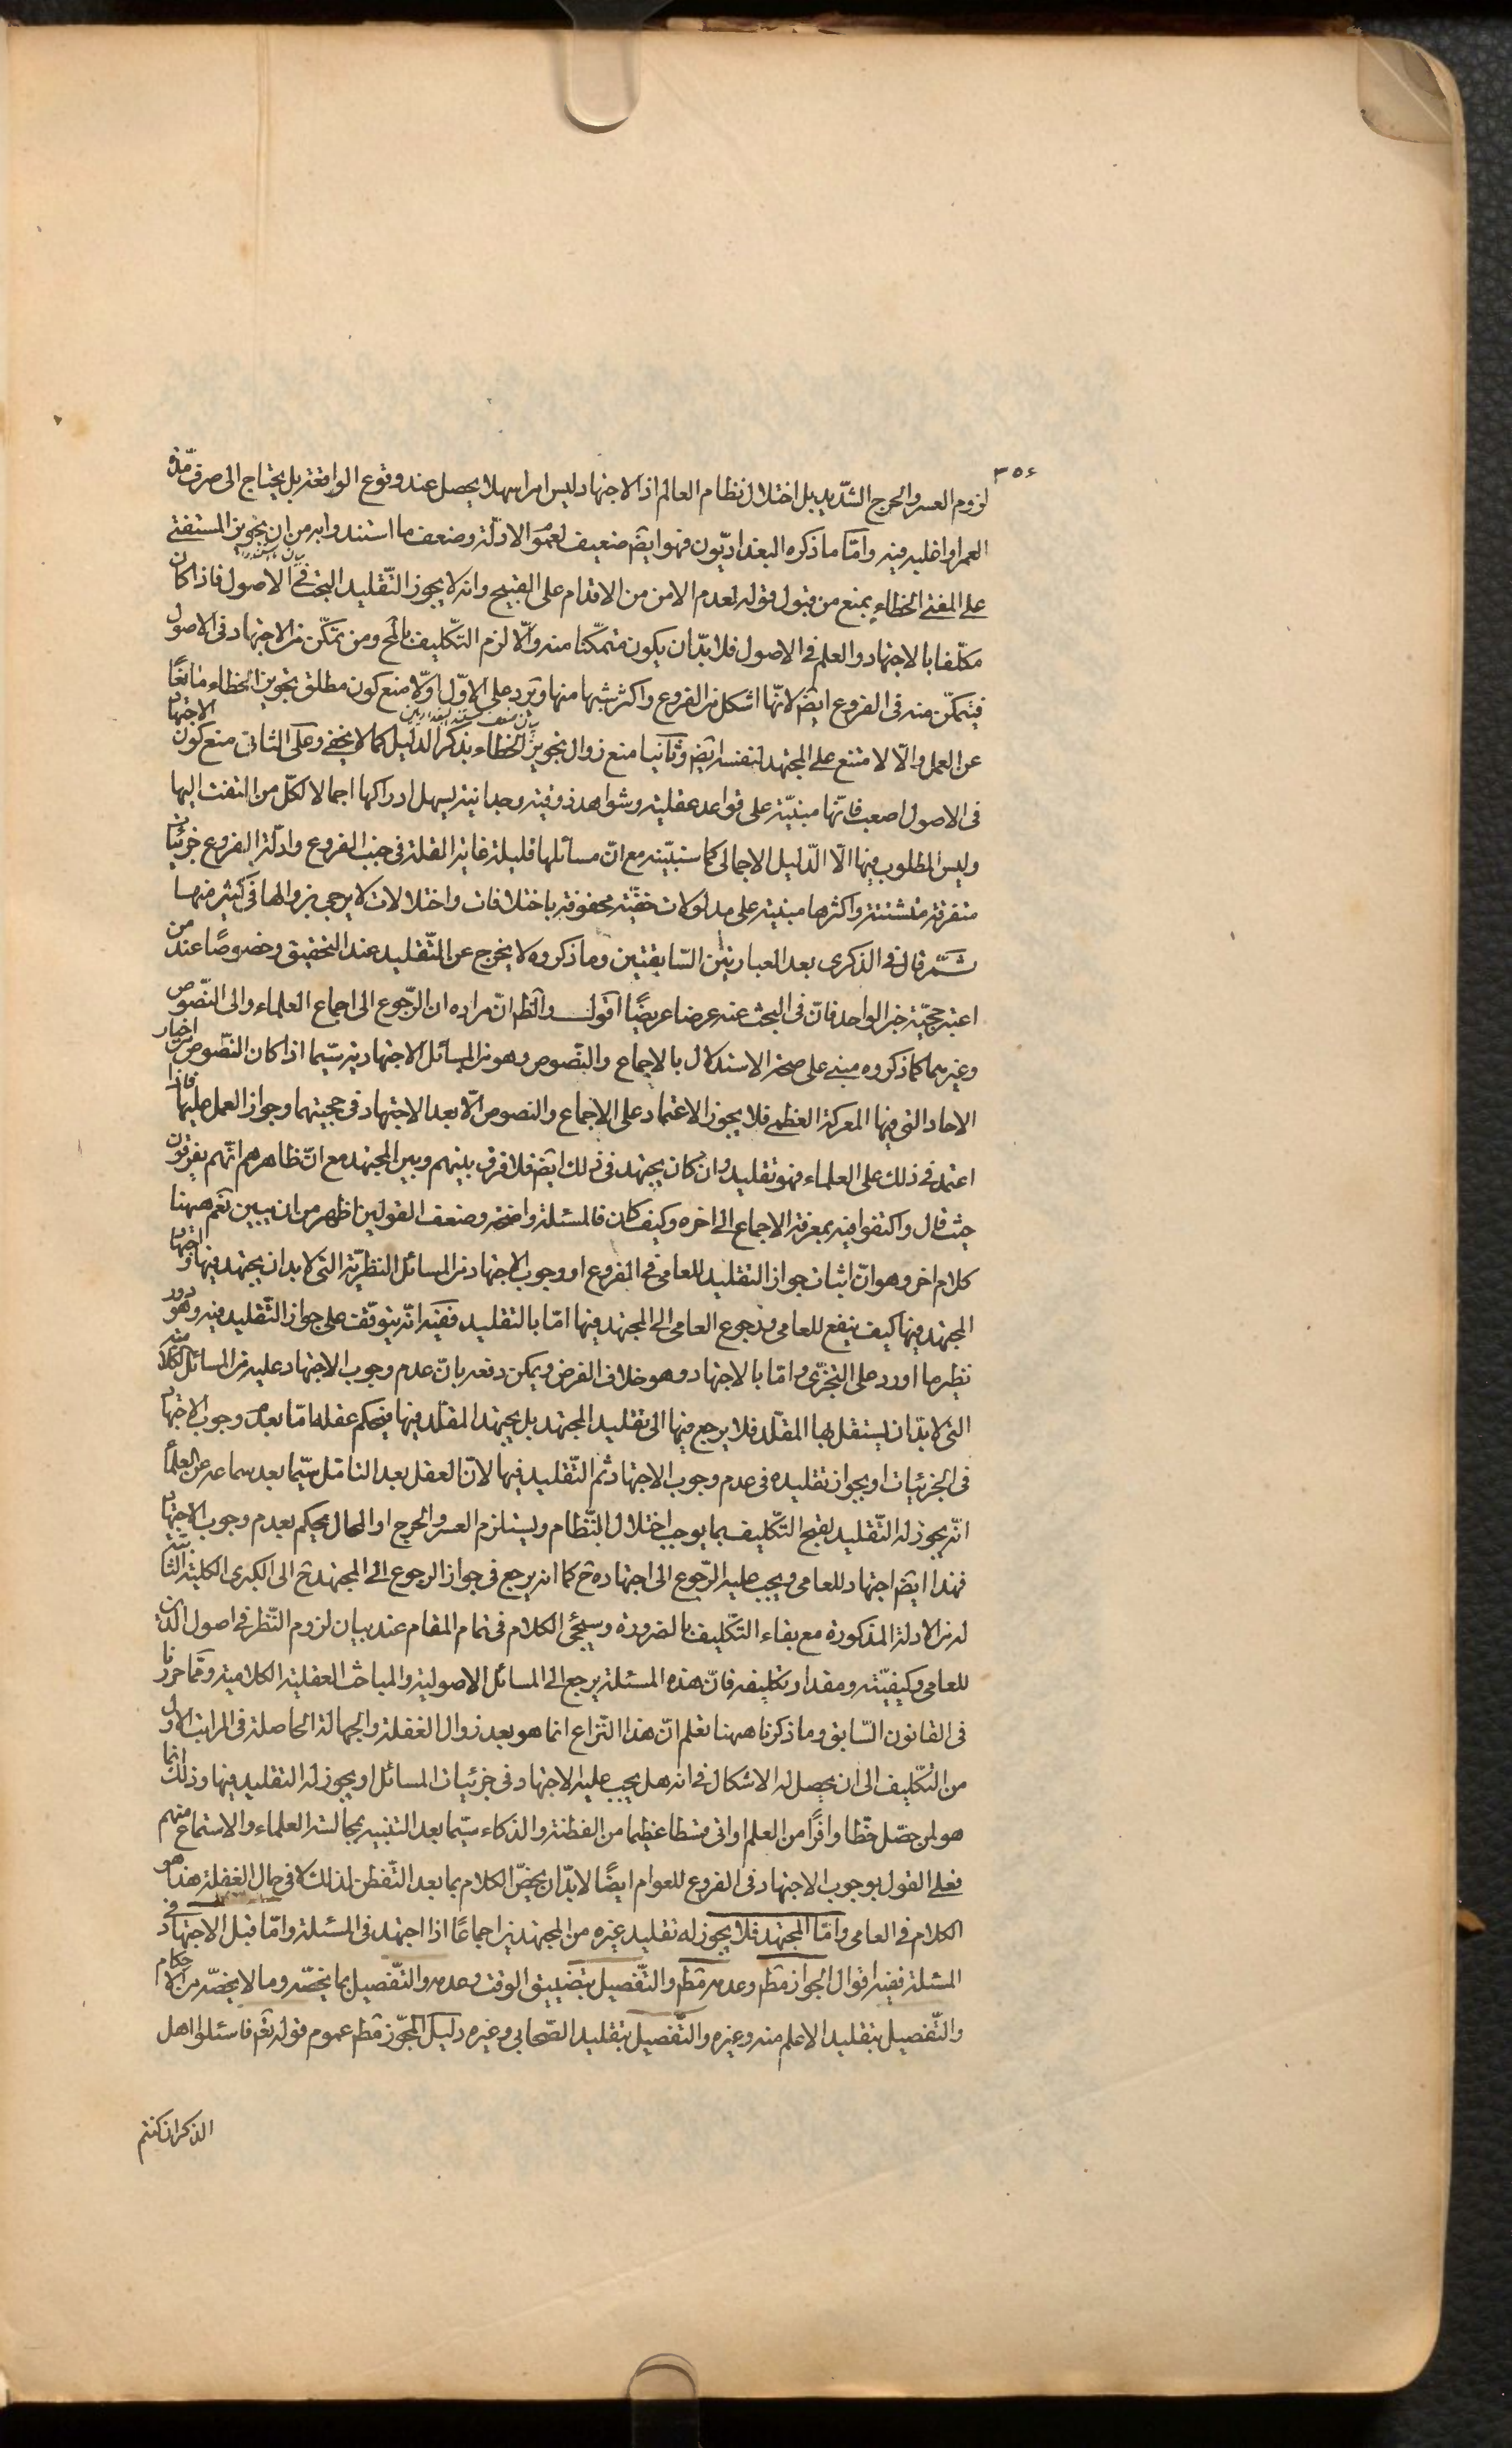 ٣٥٤
لزوم العسر والحرج الشّديد بل اختلال نظام العالم اذ الاجتهاد ليس امرا سهلا يحصل عند وقوع الواقعة بل يحتاج الى صرف مدّة
العمر او اغلبه فيه وامّا ما ذكره البغداديّون فهو ايضا ضعيف لعموم الادلّة وضعف ما استندوا به من ان تجويز المستفتى
على المفتى الخطاء يمنع من قبول قوله لعدم الامن من الاقدام على القبيح وانه لا يجوز التّقليد البحت فى الاصول فاذا كان
مكلّفا بالاجتهاد والعلم فى الاصول فلا بدّ ان يكون متمكّنا منه والّا لزم التّكليف بالمح ومن تمكّن من الاجتهاد فى الاصول
فيتمكّن منه فى الفروع ايضا لانّها اشكل من الفروع واكثر شبها منها ويرد على الاوّل اوّلا منع كون مطلق تجويز الخطاء مانعًا
عن العمل والّا لامتنع على المجتهد لنفسه ايضا وثانيا منع زوال تجويز الخطاء بذكر الدليل كما لا يخفى وعلى الثانى منع كون الاجتهاد
فى الاصول اصعب فانّها مبنيّة على قواعد عقلية وشواهد ذوقية وجدانية يسهل ادراكها اجمالا لكلّ من التفت اليها
وليس المطلوب فيها الّا الدّليل الاجمالى كما سنبيّنه مع انّ مسائلها قليلة غاية القلة فى جنب الفروع وادلّة الفروع جزئيات
متفرقة متشتتة واكثرها مبنية على مدلولات خفيّة محفوفة باختلافات واختلالات لا يرجى زوالها فى كثير منها
ثمّ قال فى الذكرى بعد العبارتين السّابقتين وما ذكروه لا يخرج عن التّقليد عند التحقيق وخصوصًا عند من
اعتبر حجيّة خبر الواحد فانّ فى البحث عنه عرضا عريضًا اقول والظ انّ مراده ان الرّجوع الى اجماع العلماء والى النّصوص
وغيرهما كما ذكروه مبنى على صحة الاستدلال بالاجماع والنّصوص وهو من المسائل الاجتهادية سيّما اذا كان النّصوص من اخبار
الاحاد التى فيها المعركة العظمى فلا يجوز الاعتماد على الاجماع والنصوص الّا بعد الاجتهاد فى حجيتهما وجواز العمل عليهما فاذا
اعتمد فى ذلك على العلماء فهو تقليد وان كان يجتهد فى ذلك ايضا فلا فرق بينهم وبين المجتهد مع انّ ظاهرهم انّهم يفرقون
حيث قال واكتفوا فيه بمعرفة الاجماع الى اخره وكيف كان فالمسئلة واضحة وضعف القولين اظهر من ان يبين نعم ههنا
كلام اخر وهو انّ اثبات جواز التقليد للعامى فى الفروع او وجوب الاجتهاد من المسائل النظريّة التى لا بد ان يجتهد فيها واجتهاد
المجتهد فيها كيف ينفع للعامى ورجوع العامى الى المجتهد فيها امّا بالتقليد ففيه انّه يتوقّف على جواز التّقليد فيه وهو دور
نظير ما اورد على التجزّى وامّا بالاجتهاد وهو خلاف الفرض ويمكن دفعه بانّ عدم وجوب الاجتهاد عليه من المسائل الكلامية
التى لا بدّ ان يستقل بها المقلّد فلا يرجع فيها الى تقليد المجتهد بل يجتهد المقلّد فيها فيحكم عقله امّا بعدم وجوب الاجتهاد
فى الجزئيات او بجواز تقليده فى عدم وجوب الاجتهاد ثم التّقليد فيها لانّ العقل بعد التامّل سيّما بعد سماعه عن العلماء
انّه يجوز له التّقليد لقبح التّكليف بما يوجب اختلال النّظام ويستلزم العسر والحرج او المحال يحكم بعدم وجوب الاجتهاد
فهذا ايضا اجتهاد للعامى ويجب عليه الرّجوع الى اجتهاده ح كما انه يرجع فى جواز الرجوع الى المجتهد ح الى الكبرى الكلية الثابتة
له من الادلة المذكورة مع بقاء التّكليف بالضرورة وسيجئ الكلام فى تمام المقام عند بيان لزوم النّظر فى اصول الدين
للعامى وكيفيّته ومقدار تكليفه فانّ هذه المسئلة يرجع الى المسائل الاصولية والمباحث العقلية الكلامية وممّا حررنا
فى القانون السّابق وما ذكرنا ههنا تعلم انّ هذا النّزاع انما هو بعد زوال الغفلة والجهالة الحاصلة فى المراتب الاول
من التّكليف الى ان يحصل له الاشكال فى انه هل يجب عليه الاجتهاد فى جزئيات المسائل او يجوز له التقليد فيها وذلك انما
هو لمن حصّل حظّا وافرًا من العلم او اتى قسطا عظيما من الفطنة والذكاء سيّما بعد التنبيه بمجالسة العلماء والاستماع منهم
فعلى القول بوجوب الاجتهاد فى الفروع للعوام ايضًا لا بدّ ان يخصّ الكلام بما بعد التّفطن لذلك لا فى حال الغفلة هذا هو
الكلام فى العامى وامّا المجتهد فلا يجوز له تقليد غيره من المجتهدين اجماعًا اذا اجتهد فى المسئلة وامّا قبل الاجتهاد فى
المسئلة ففيه اقوال الجواز مطم وعدمه مطم والتّفصيل بتضييق الوقت وعدمه والتّفصيل بما يخصّه وما لا يخصّه من الاحكام
والتّفصيل بتقليد الاعلم منه وغيره والتّفصيل بتقليد الصّحابى وغيره دليل المجوّز مطم عموم قوله تعم فاسئلوا اهل
الذكر ان كنتم